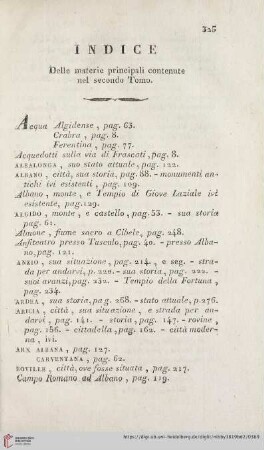 325
INDICE
Delle materie principali contenute
nel secondo Tomo.
Acqua Algidense, pag. 63.
Crabra, pag. 8.
Ferentina, pag. 77.
Acquedotti sulla via di Frascati, pag. 8.
ALBALONGA, suo stato attuale, pag. 122.
ALBANO, città, sua storia, pag. 88. - monumenti an-
tichi ivi esistenti, pag. 109.
Albano, monte, e Tempio di Giove Laziale ivi
esistente, pag. 129.
ALGIDO, monte, e castello, pag. 53. - sua storia
pag. 61.
Almone, fiume sacro a Cibele, pag. 248.
Anfiteatro presso Tusculo, pag. 40. - presso Alba-
no, pag. 121.
ANZIO, sua situazione, pag. 214., e seg. - stra-
da per andarvi, p. 222. - sua storia, pag. 222. -
suoi avanzi, pag. 232. - Tempio della Fortuna,
pag. 234.
ARDEA, sua storia, pag. 268. - stato attuale, p. 276.
ARICIA, città, sua situazione, e strada per an-
darvi, pag. 141. - storia, pag. 147. - rovine,
pag. 156. - cittadella, pag. 162. - città moder-
na, ivi.
ARX ALBANA, pag. 127.
CARVENTANA, pag. 62.
BOVILLE, città, ove fosse situata, pag. 217.
Campo Romano ad Albano, pag. 119.